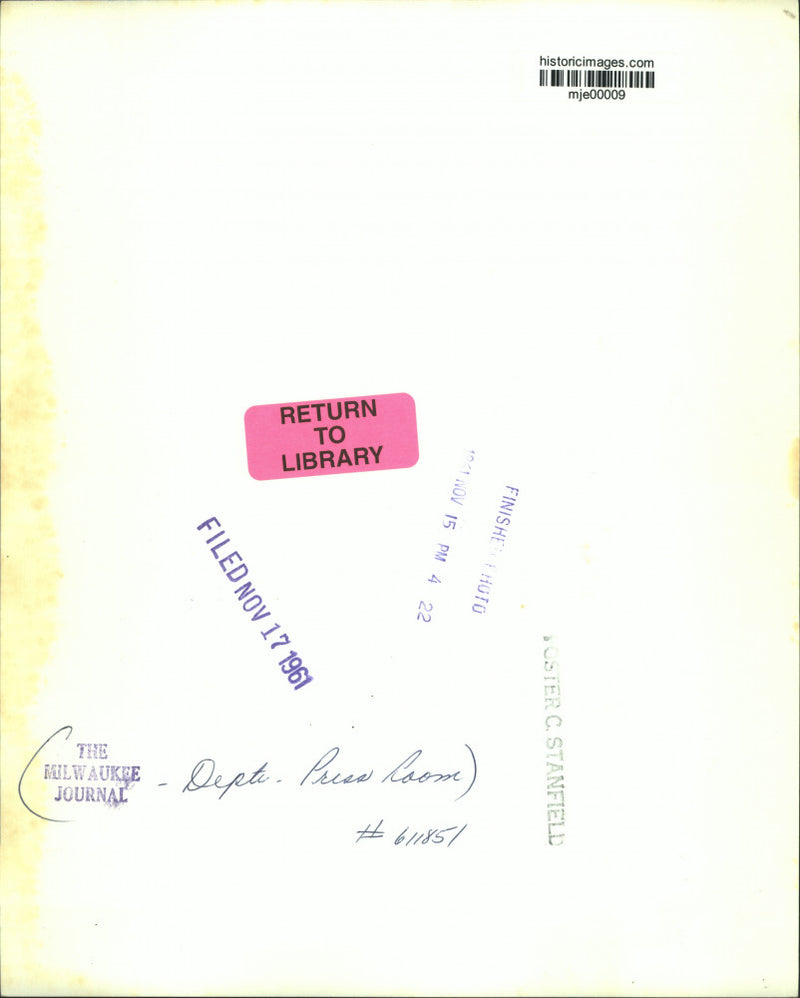 historicimages.com
mje00009
RETURN
TO
LIBRARY
FINISHED PHOTO
1961 NOV 15 PM 4 22
FILED NOV 17 1961
FOSTER C. STANFIELD
(THE
MILWAUKEE
JOURNAL - Depts - Press Room)
# 611851